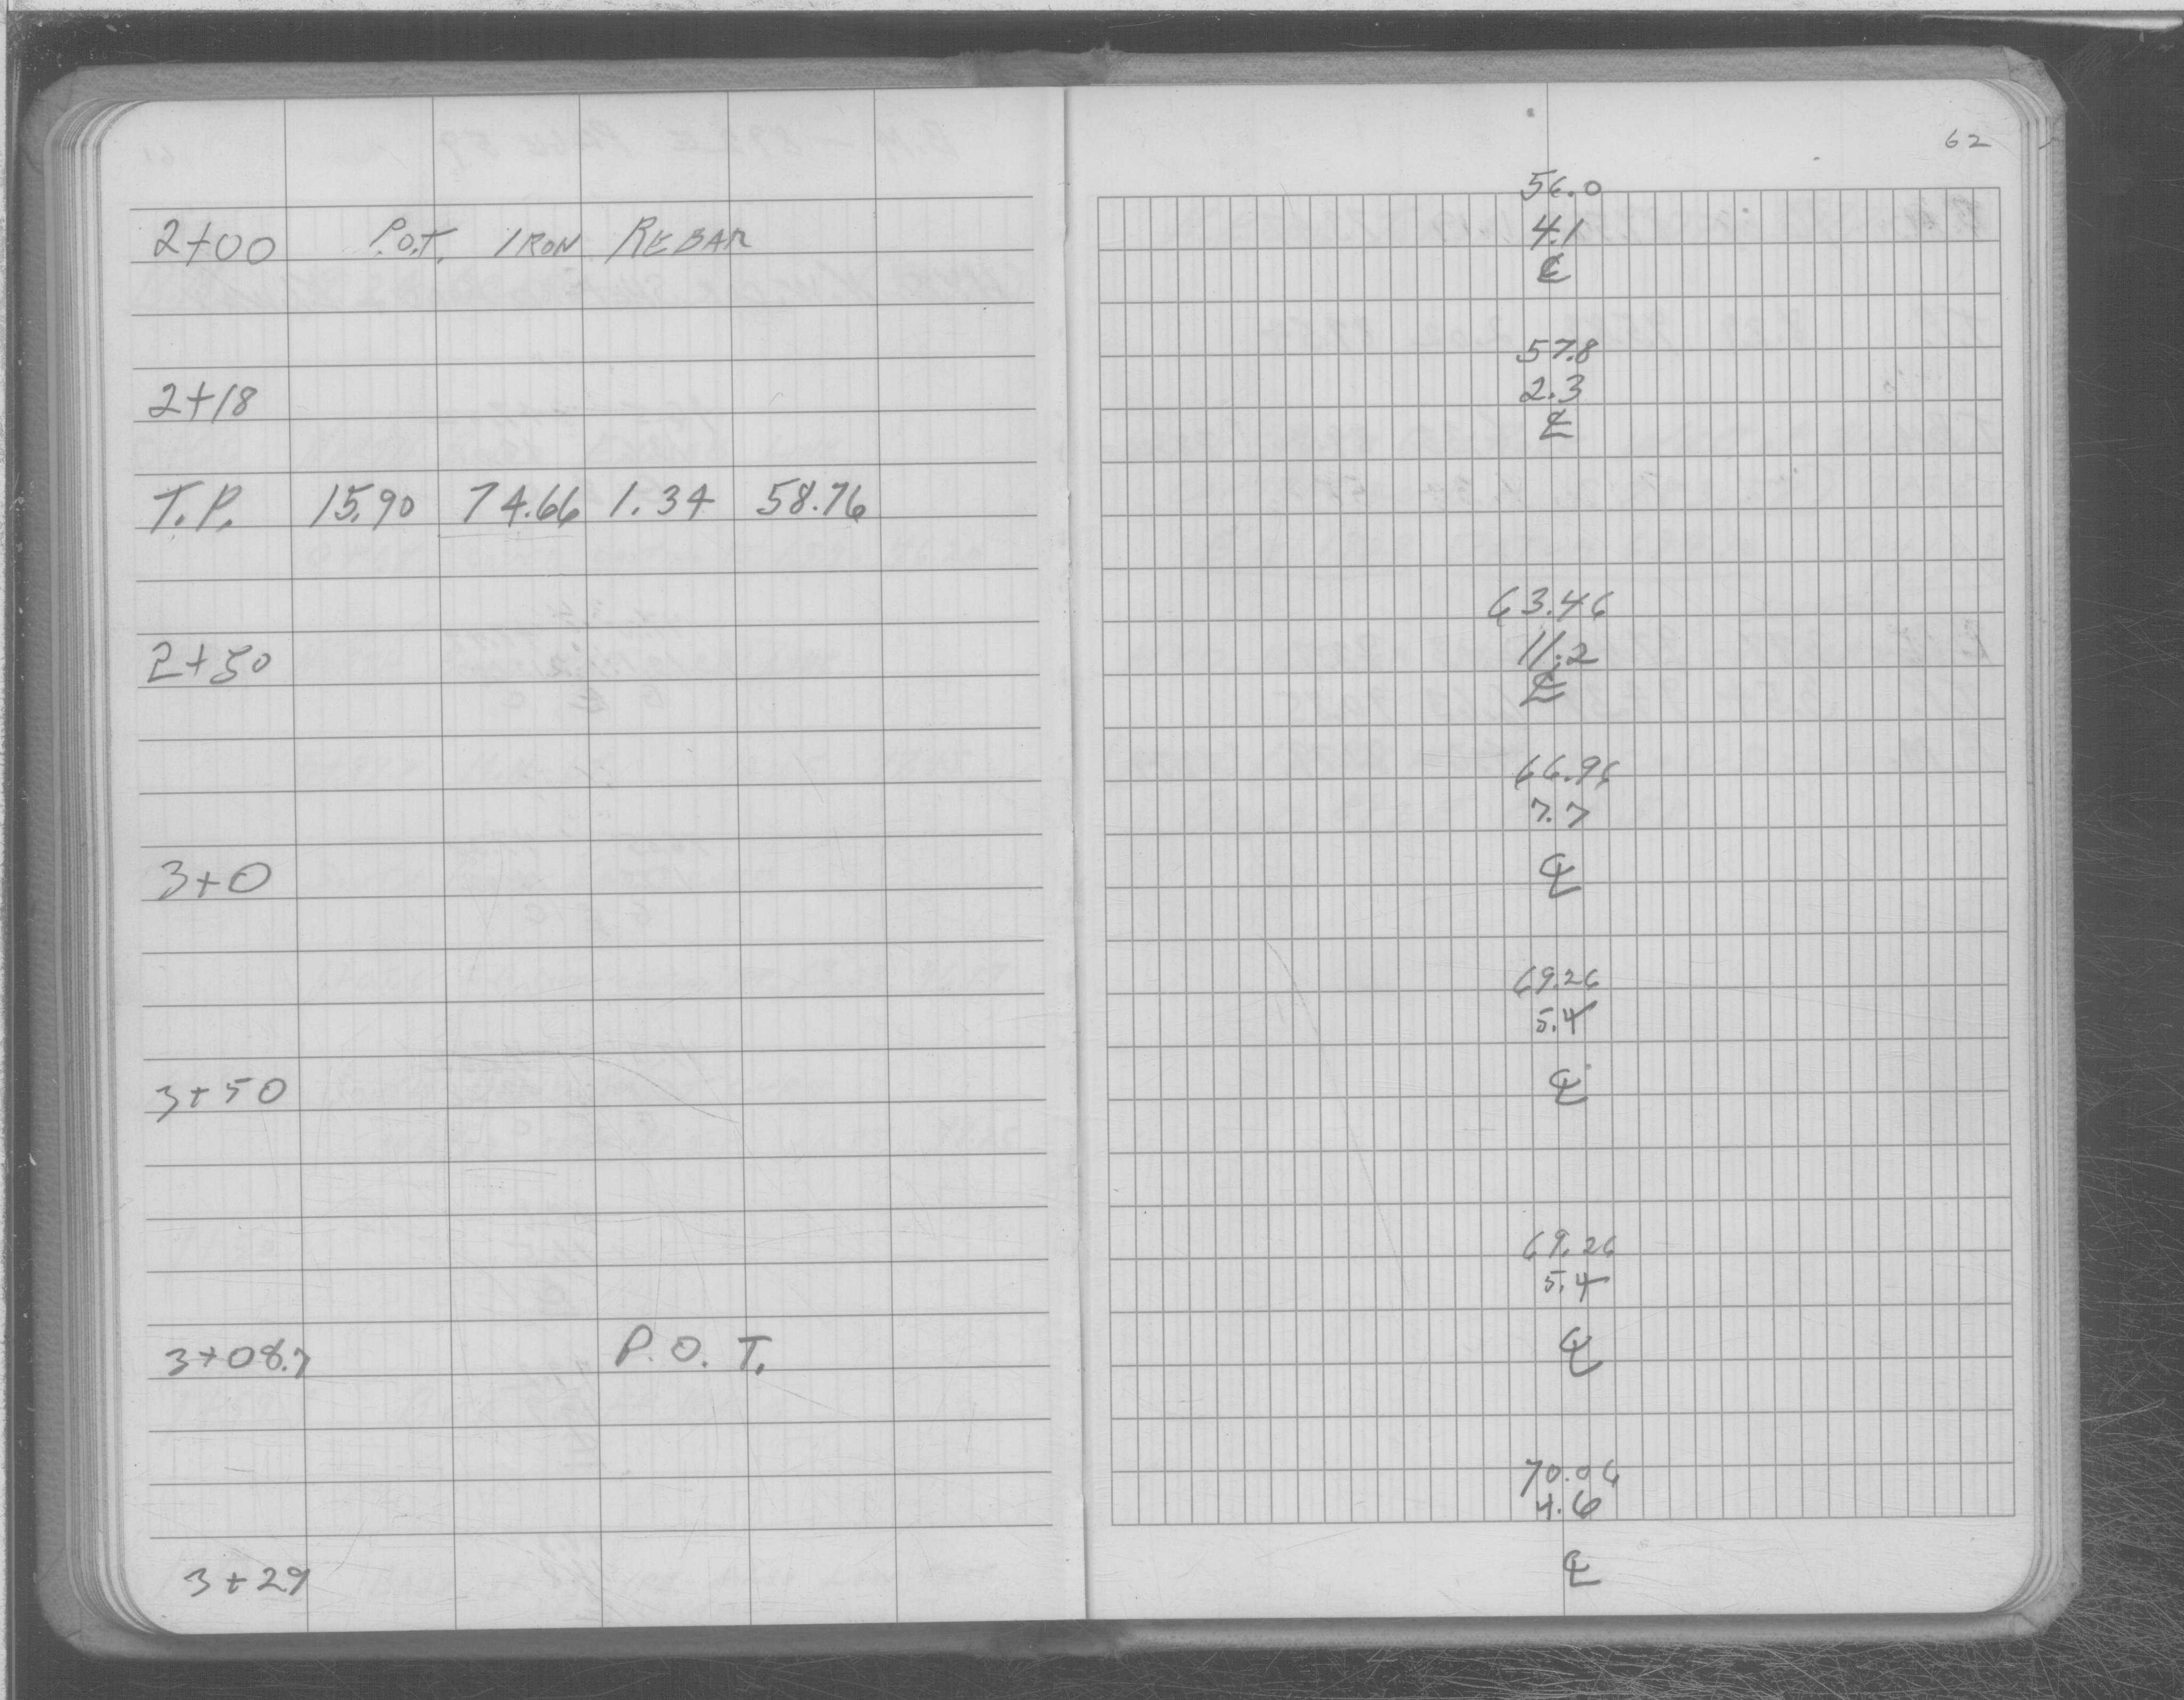 62
2+00 P.O.T. IRON REBAR
56.0
4.1
℄
2+18
57.8
2.3
℄
T.P. 15.90 74.66 1.34 58.76
2+50
63.46
11.2
℄
66.96
7.7
3+0
℄
69.26
5.4
3+50
℄
69.26
5.4
3+08.7 P.O.T.
℄
70.06
4.6
3+29
℄